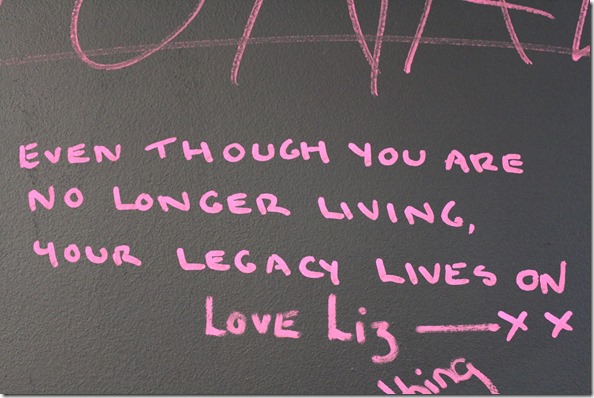 EVEN THOUGH YOU ARE
NO LONGER LIVING,
YOUR LEGACY LIVES ON
LOVE Liz — X X
thing